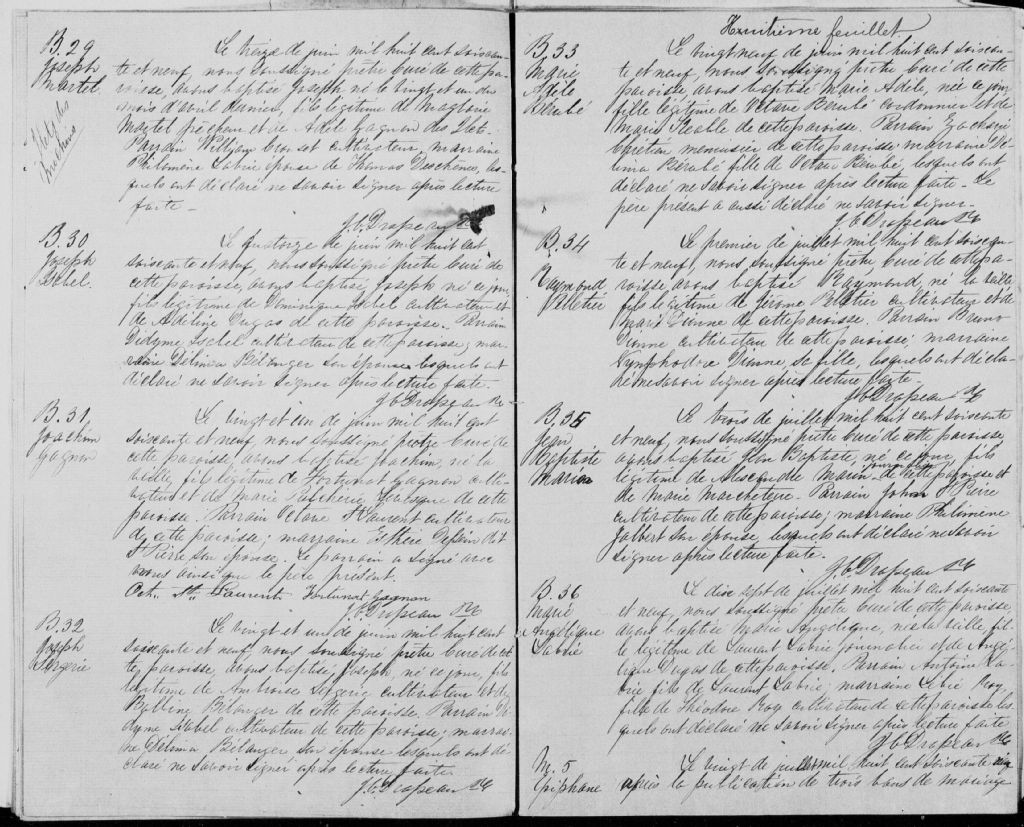 B. 29
Joseph
Martel
Le treize de juin mil huit cent soixan-
te et neuf, nous soussigné prêtre Curé de cette pa-
roisse, avons baptisé Joseph né le vingt et un du
mois d'avril dernier, fils légitime de Magloire
Martel pêcheur et de Adèle Gagnon des Ilets
Parrain William cultivateur, marraine
Philomène Labrie épouse de Thomas Duschene, les-
quels ont déclaré ne savoir signer après lecture
faite -
J. C. Drapeau Ptre
B. 30
Joseph
Isabel.
Le quatorze de juin mil huit cent
soixante et neuf, nous soussigné prêtre Curé de
cette paroisse, avons baptisé Joseph né ce jour,
fils légitime de Dominique Isabel cultivateur et
de Adéline Dugas de cette paroisse. Parrain
Didyme Isabel cultivateur de cette paroisse; mar-
raine Délima Bélanger son épouse, lesquels ont
déclaré ne savoir signer après lecture faite.
J. C. Drapeau Ptre
B. 31
Joachim
Gagnon
Le vingt et un de juin mil huit cent
soixante et neuf, nous soussigné prêtre Curé de
cette paroisse, avons baptisé Joachim, né la
veille, fils légitime de Fortunat Gagnon culti-
vateur et de Marie de cette
paroisse. Parrain Octave St Laurent cultivateur
de cette paroisse; marraine Esthère dit
St Pierre son épouse. Le parrain a signé avec
nous ainsi que le père présent.
Oct. St. Laurent Fortunat Gagnon
J. C. Drapeau Ptre
B. 32
Joseph
Sergerie
Le vingt et un de juin mil huit cent
soixante et neuf nous soussigné prêtre Curé de cet-
te paroisse, avons baptisé Joseph, né ce jour, fils
légitime de Ambroise Sergerie cultivateur et de
Bélanger de cette paroisse. Parrain Di-
dyme Isabel cultivateur de cette paroisse; marrai-
ne Délima Bélanger son épouse lesquels ont dé-
claré ne savoir signer après lecture faite.
J. C. Drapeau Ptre
Huitième feuillet
B. 33
Marie
Adèle
Bérubé
Le vingt neuf de juin mil huit cent soixan-
te et neuf, nous soussigné prêtre Curé de cette
paroisse, avons baptisé Marie Adèle, née ce jour
fille légitime de Octave Bérubé cordonnier et de
Marie de cette paroisse. Parrain Zacharie
Chrétien menuisier de cette paroisse; marraine Dé-
lima Bérubé fille de Octave Bérubé, lesquels ont
déclaré ne savoir signer après lecture faite - Le
père présent a aussi déclaré ne savoir signer -
J. C. Drapeau Ptre
B. 34
Raymond
Pelletier
Le premier de juillet mil huit cent soixan-
te et neuf, nous soussigné prêtre, Curé de cette pa-
roisse, avons baptisé Raymond, né la veille
fils légitime de Jérome Pelletier cultivateur et de
Marie Dionne de cette paroisse. Parrain Bruno
Dionne cultivateur de cette paroisse; marraine
Nymphodore Dionne, sa fille, lesquels ont décla-
ré ne savoir signer après lecture faite -
J. C. Drapeau Ptre
B. 35
Jean
Baptiste
Marin
Le trois de juillet mil huit cent soixante
et neuf, nous soussigné prêtre Curé de cette paroisse,
avons baptisé Jean Baptiste, né ce jour, fils
journalier
légitime de Alexandre Marin de cette paroisse et
de Marie Marcheterre - Parrain John St Pierre
cultivateur de cette paroisse; marraine Philomène
Jalbert son épouse, lesquels ont déclaré ne savoir
signer après lecture faite.
J. C. Drapeau Ptre
B. 36
Marie
Angélique
Labrie
Le dix sept de juillet mil huit cent soixante
et neuf, nous soussigné prêtre Curé de cette paroisse,
avons baptisé Marie Angélique, née la veille, fil-
le légitime de Laurent Labrie journalier et de Angé-
lique Dugas de cette paroisse. Parrain Antoine La-
brie fils de Laurent Labrie; marraine Roy
fille de Théodore Roy cultivateur de cette paroisse les-
quels ont déclaré ne savoir signer après lecture faite
J. C. Drapeau Ptre
M. 5
Epiphane
Le vingt de juillet mil huit cent soixante neuf
après la publication de trois bans de mariage